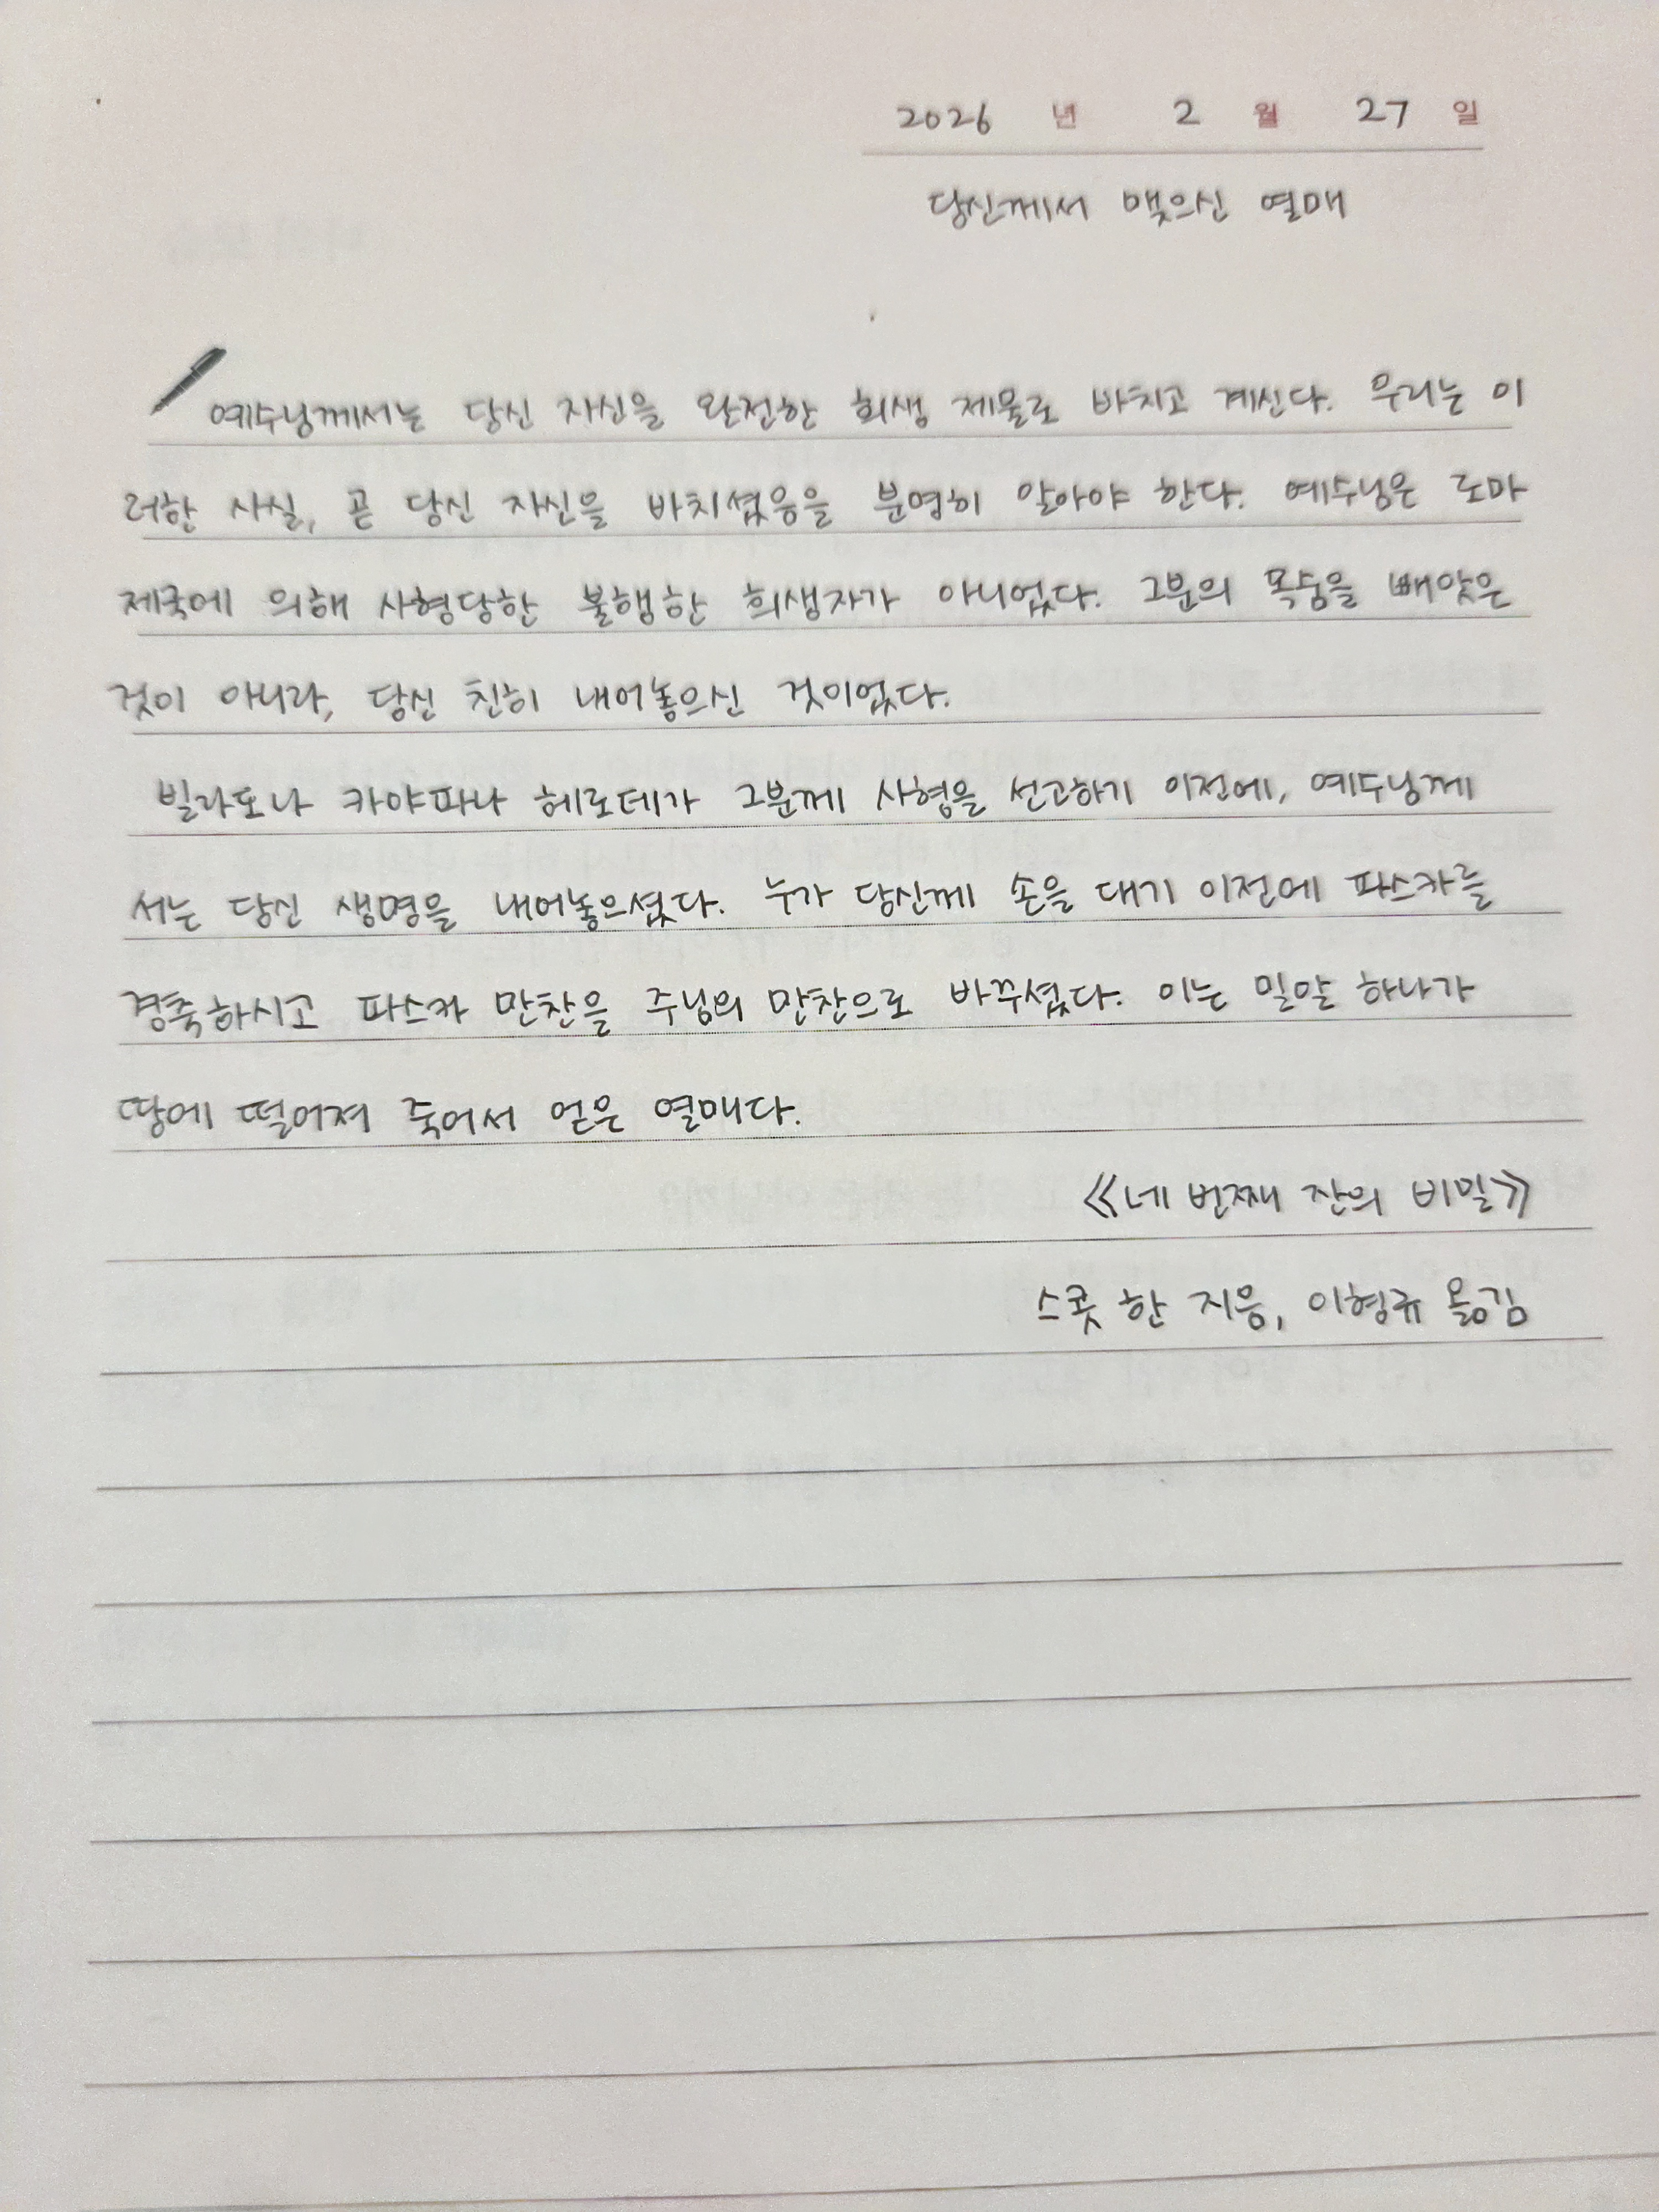 2026 년 2 월 27 일
당신께서 맺으신 열매
예수님께서는 당신 자신을 완전한 희생 제물로 바치고 계신다. 우리는 이
러한 사실, 곧 당신 자신을 바치셨음을 분명히 알아야 한다. 예수님은 로마
제국에 의해 사형당한 불행한 희생자가 아니었다. 그분의 목숨을 빼앗은
것이 아니라, 당신 친히 내어놓으신 것이었다.
빌라도나 카야파나 헤로데가 그분께 사형을 선고하기 이전에, 예수님께
서는 당신 생명을 내어놓으셨다. 누가 당신께 손을 대기 이전에 파스카를
경축하시고 파스카 만찬을 주님의 만찬으로 바꾸셨다. 이는 밀알 하나가
땅에 떨어져 죽어서 얻은 열매다.
《네 번째 잔의 비밀》
스콧 한 지음, 이형규 옮김